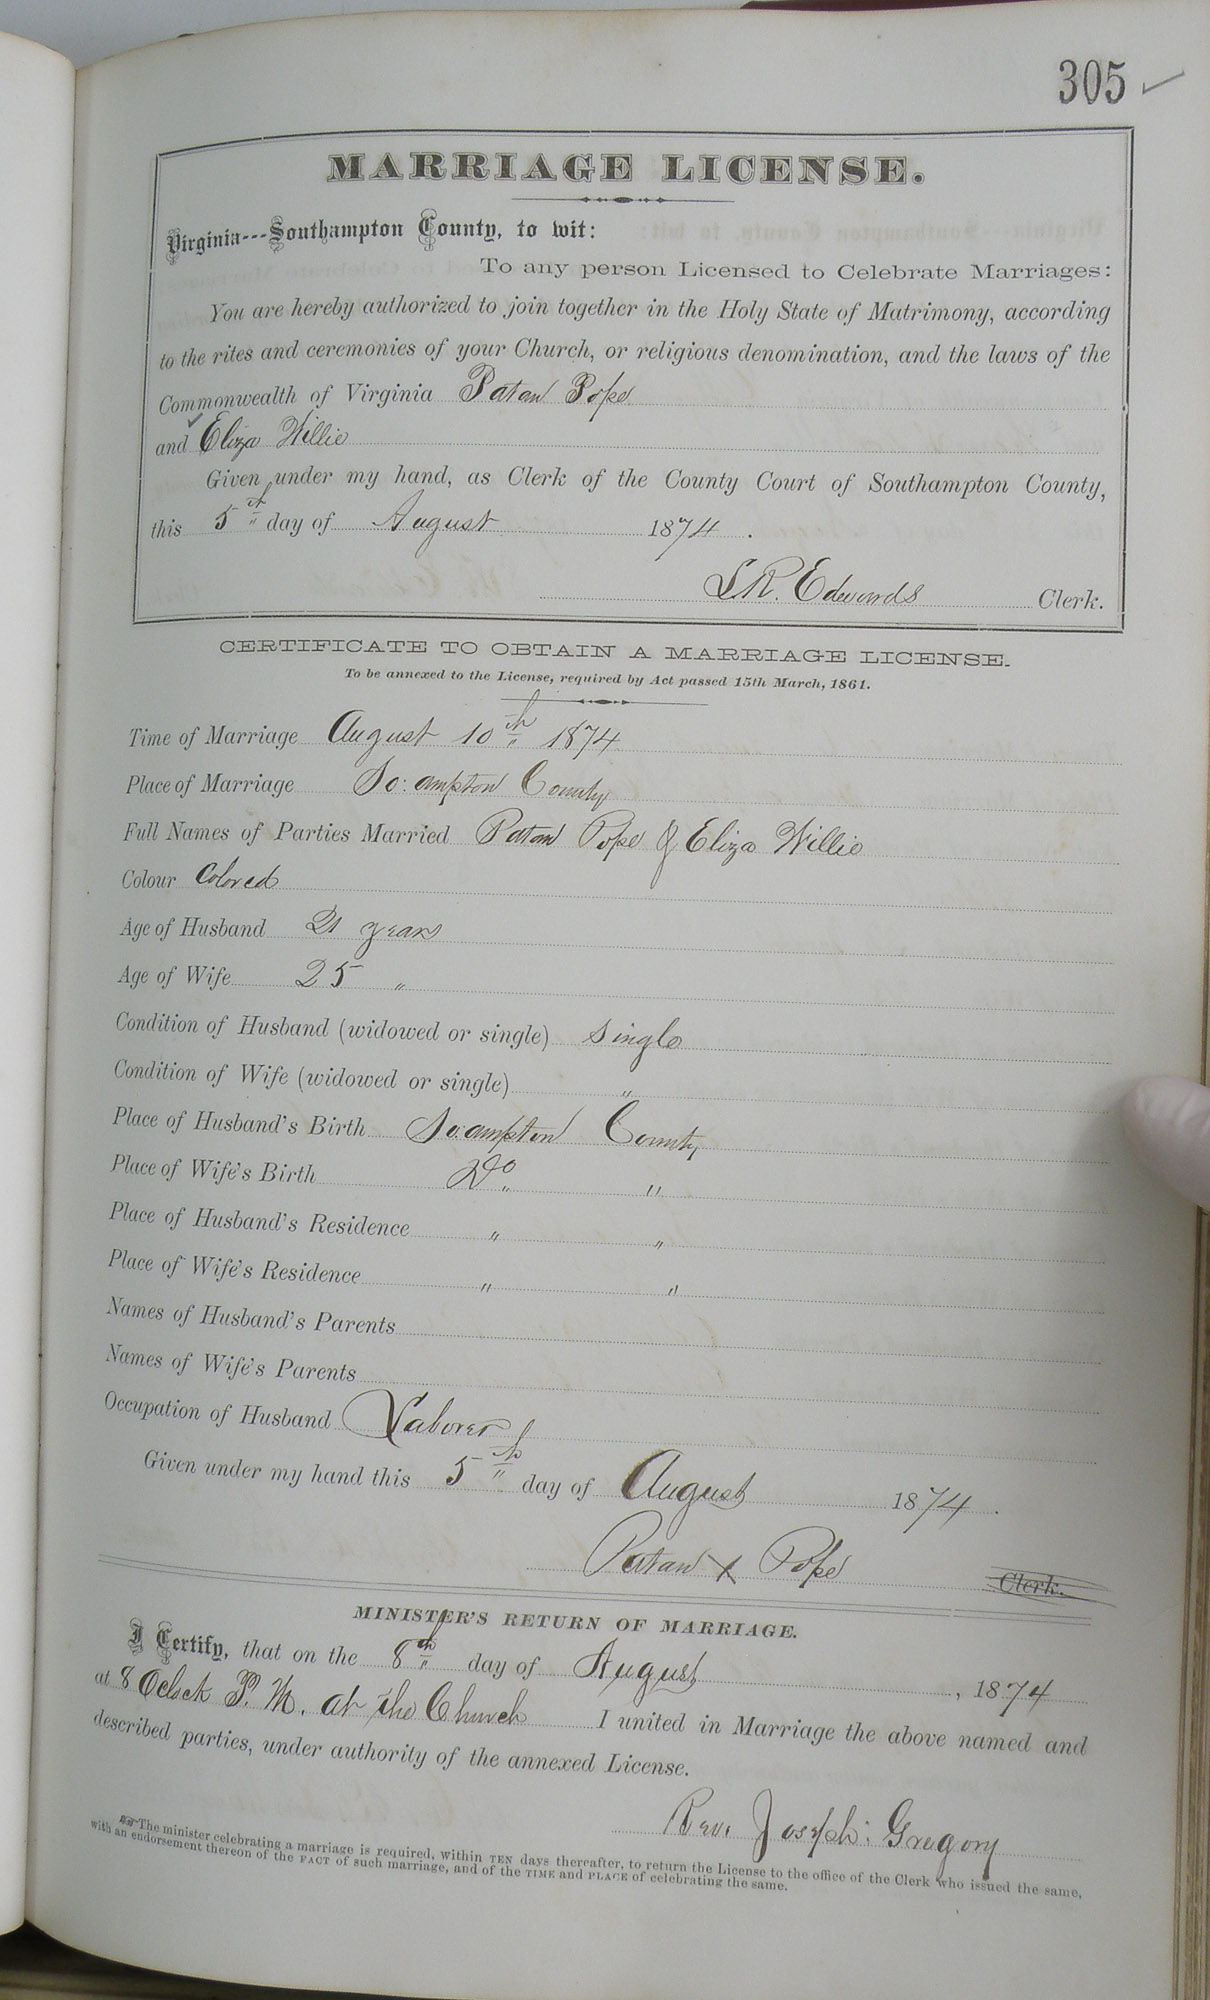 305
MARRIAGE LICENSE.
Virginia---Southampton County, to wit:
To any person Licensed to Celebrate Marriages:
You are hereby authorized to join together in the Holy State of Matrimony, according
to the rites and ceremonies of your Church, or religious denomination, and the laws of the
Commonwealth of Virginia Patan Pope
and Eliza Willie
Given under my hand, as Clerk of the County Court of Southampton County,
this 5th day of August 1874.
L.R. Edwards Clerk.
CERTIFICATE TO OBTAIN A MARRIAGE LICENSE.
To be annexed to the License, required by Act passed 15th March, 1861.
Time of Marriage August 10th 1874
Place of Marriage So:ampton County
Full Names of Parties Married Patan Pope & Eliza Willie
Colour Colored
Age of Husband 21 years
Age of Wife 25 "
Condition of Husband (widowed or single) Single
Condition of Wife (widowed or single) "
Place of Husband's Birth So:ampton County
Place of Wife's Birth Do "
Place of Husband's Residence " "
Place of Wife's Residence " "
Names of Husband's Parents
Names of Wife's Parents
Occupation of Husband Laborer
Given under my hand this 5th day of August 1874.
Patan X Pope Clerk.
MINISTER'S RETURN OF MARRIAGE.
I Certify, that on the 8th day of August, 1874
at 8 Oclock P. M. at the Church I united in Marriage the above named and
described parties, under authority of the annexed License.
Rev. Joseph: Gregory
The minister celebrating a marriage is required, within TEN days thereafter, to return the License to the office of the Clerk who issued the same,
with an endorsement thereon of the FACT of such marriage, and of the TIME and PLACE of celebrating the same.